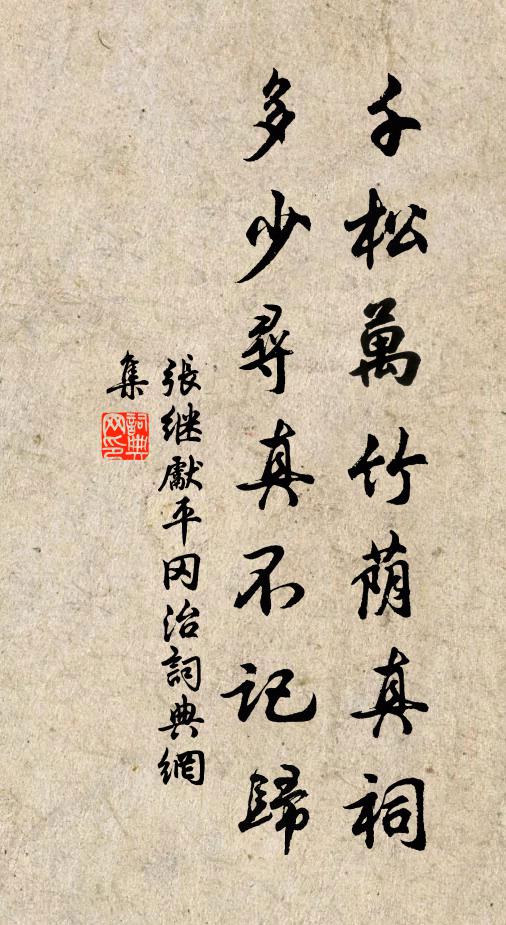 千松萬竹荫真祠
多少尋真不記歸
張继獻平冈治詞典網
集
詞典网印